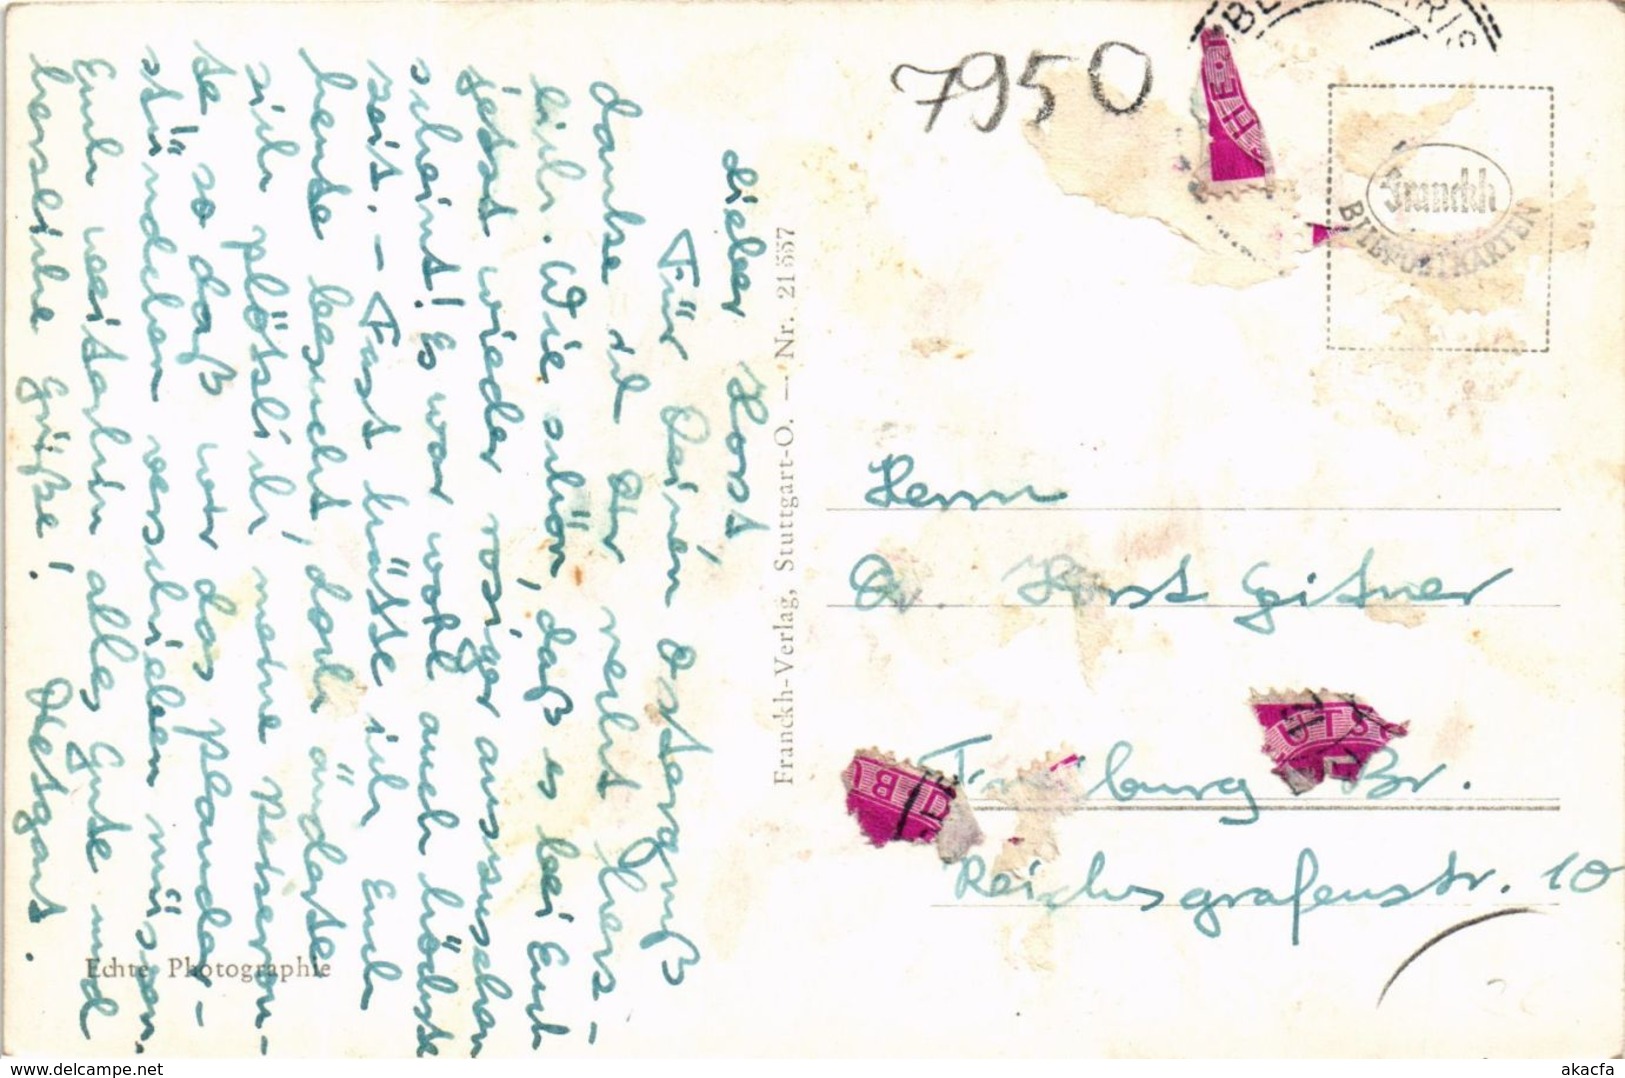 Lieber Horst,
Für Deinen Ostergruß
danke ich Dir recht herz-
lich. Wie schön, daß es bei Euch
jetzt wieder rosiger auszusehen
scheint! Es war wohl auch höchste
Zeit. – Fast hätte ich Euch
heute besucht, doch änderte
sich plötzlich meine
se so daß wir das plauder-
stündchen verschieben müssen.
Euch weiterhin alles Gute und
herzliche Grüße! Dietgart.
Echte Photographie
Franckh-Verlag, Stuttgart-O. — Nr. 21557
7950
Franckh
BILDPOSTKARTEN
Herrn
Dr. Horst Geitner
Freiburg Br.
Reichsgrafenstr. 10
akacfa
www.delcampe.net